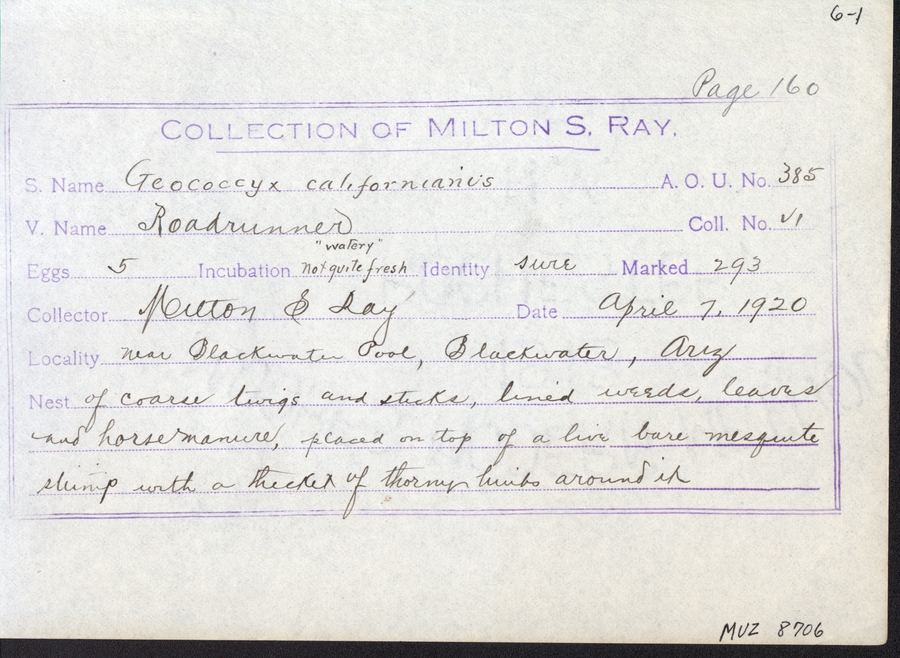 6-1
Page 160
COLLECTION OF MILTON S. RAY.
S. Name Geococcyx californianus A. O. U. No. 385
V. Name Roadrunner Coll. No. VI
"watery"
Eggs 5 Incubation not quite fresh Identity sure Marked 293
Collector Milton S Ray Date April 7, 1920
Locality near Blackwater Pool, Blackwater, Ariz
Nest of coarse twigs and sticks, lined weeds, leaves
and horse manure, placed on top of a live bare mesquite
stump with a thicket of thorny limbs around it
MUZ 8706